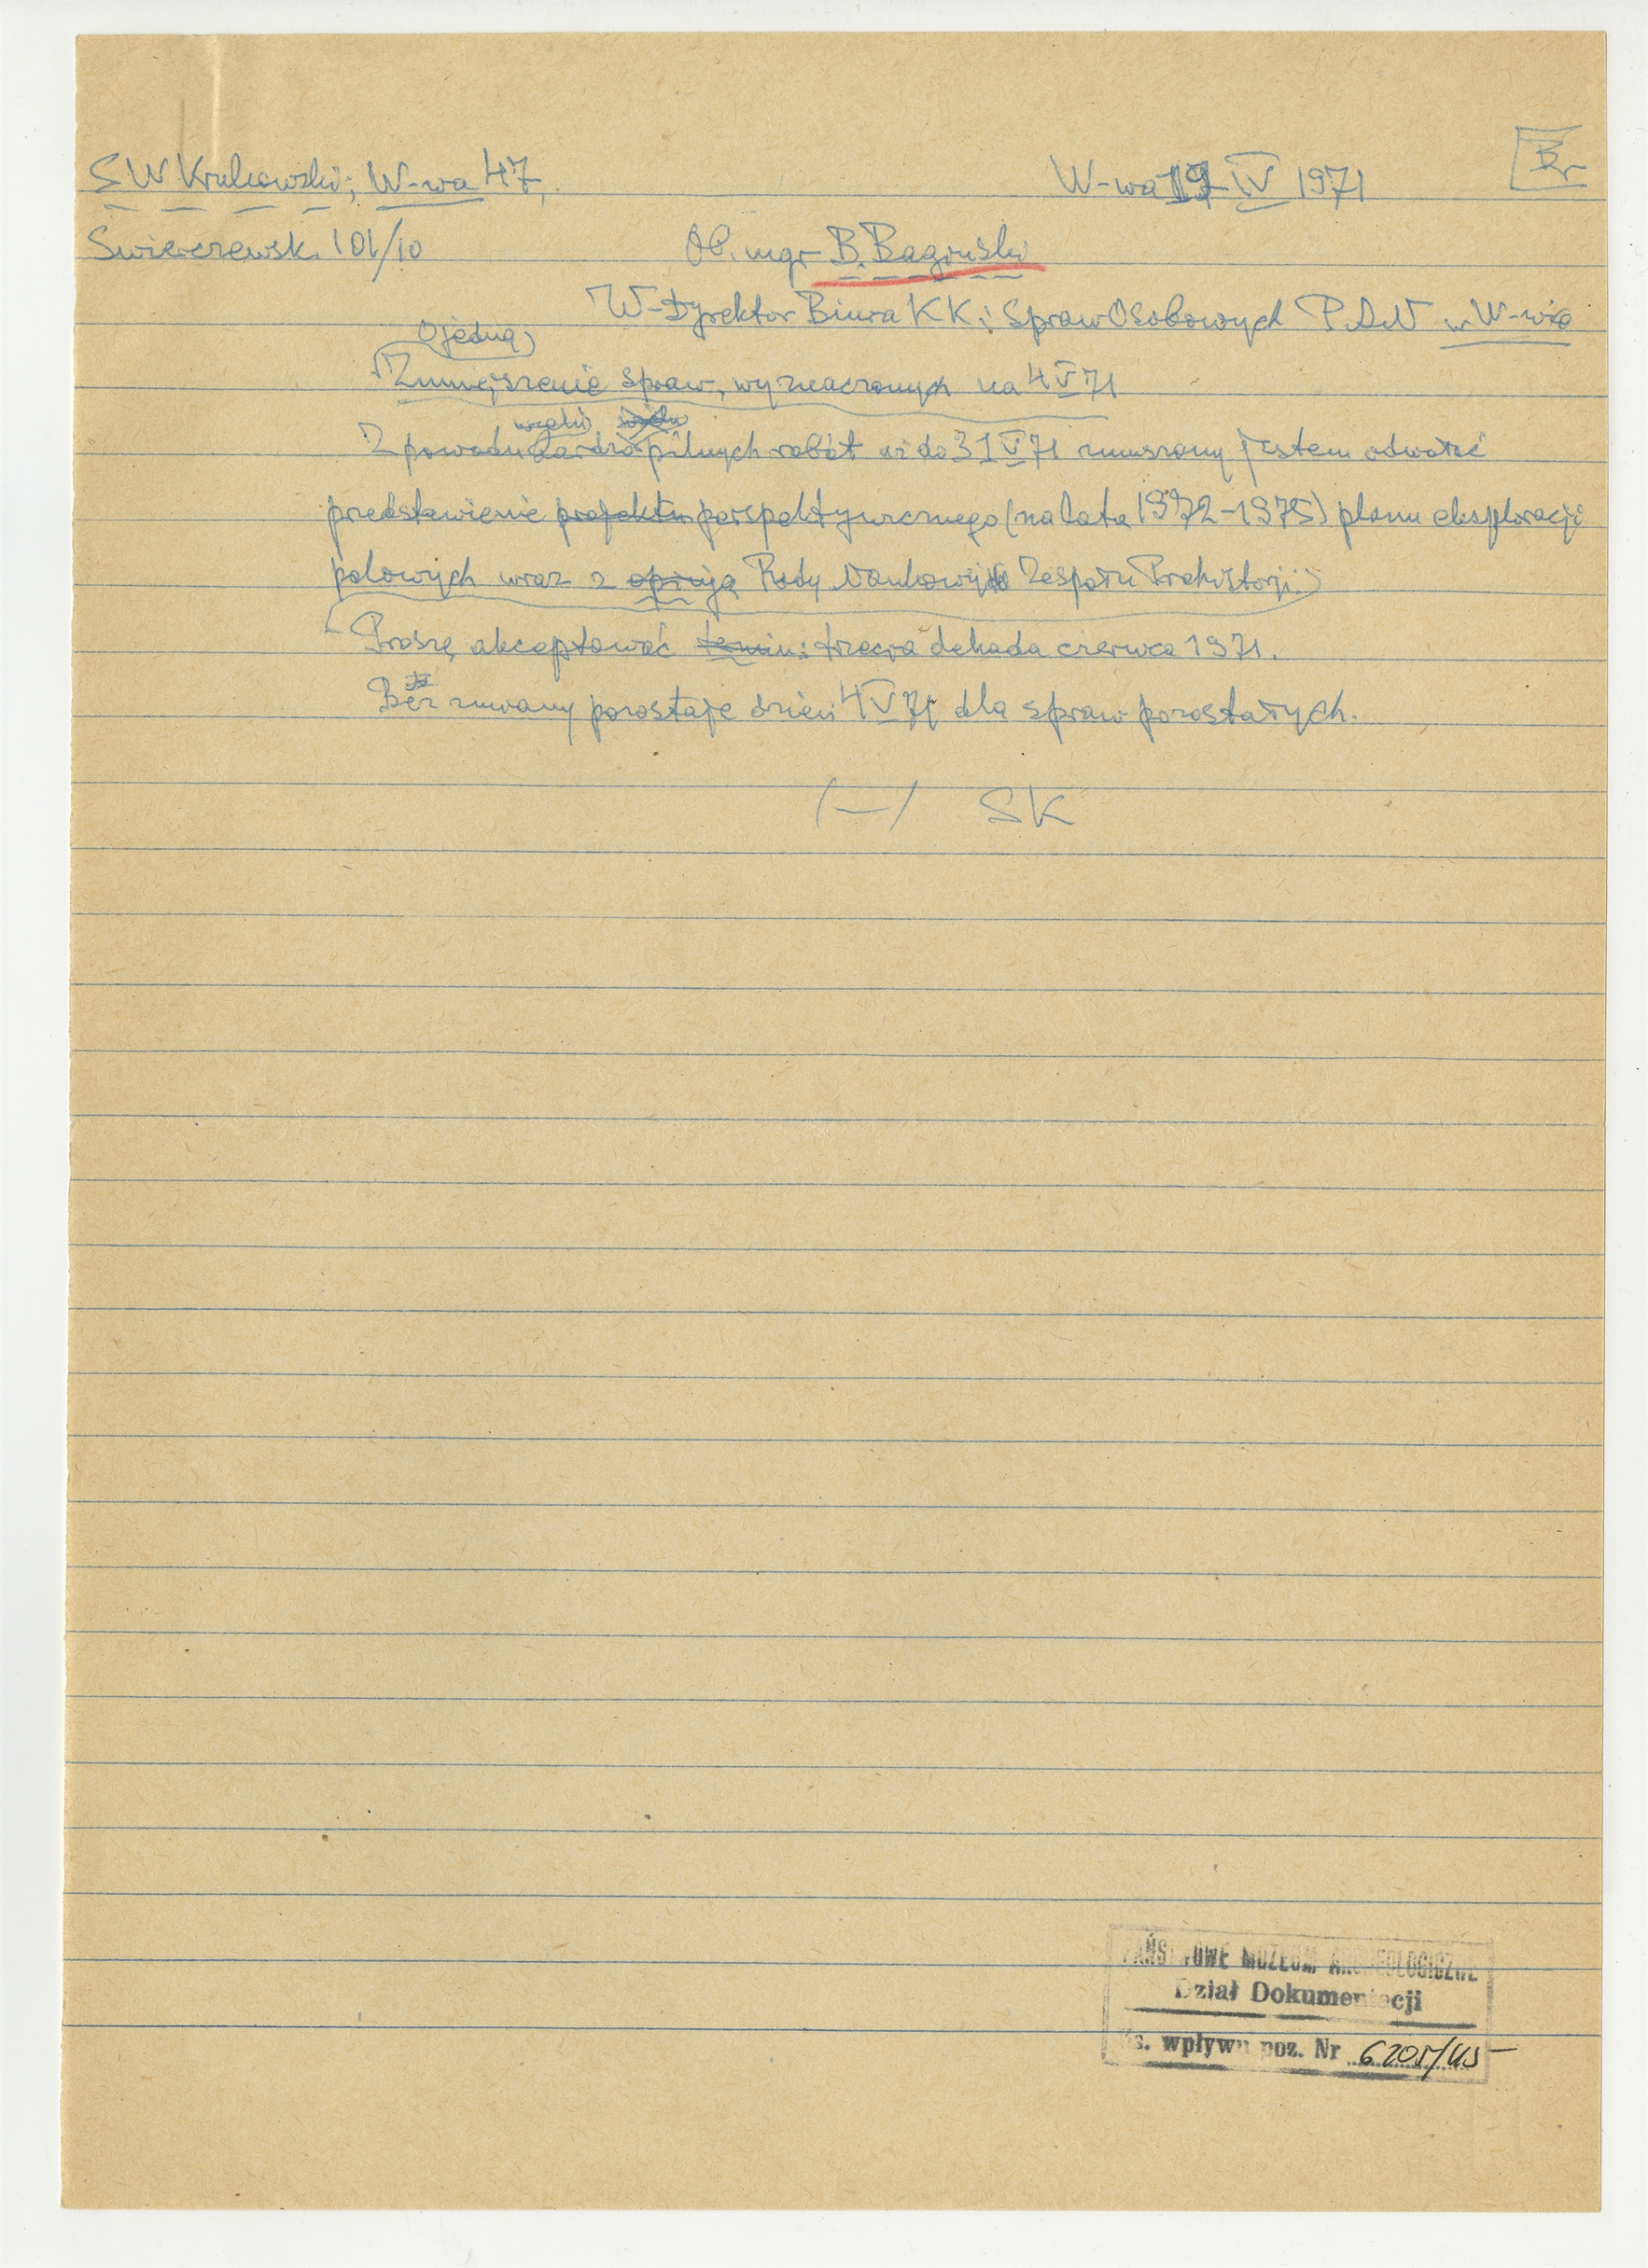 Br
S W Krukowski; W-wa 47, W-wa 19 IV 1971
Świerczewsk. 101/10 Ob. mgr B. Bagiński
W-Dyrektor Biura KK i Spraw Osobowych P.A.N w W-wie
O jedną
Zmniejszenie spraw, wyznaczonych na 4 V 71
Z powodu bardzo pilnych robót aż do 31 V 71 zmuszony jestem odwołać
predstawienie projektu perspektywicznego (na lata 1972-1975) planu eksploracji
polowych wraz z opinją Rady Naukowej Zespołu Prahistorji.
Proszę akceptować termin: trzecia dekada czerwca 1971.
Bez zmiany pozostaje dzień 4 V 71 dla spraw pozostałych.
/—/ SK
PAŃSTWOWE MUZEUM ARCHEOLOGICZNE
Dział Dokumentacji
Ks. wpływu poz. Nr 6205/45